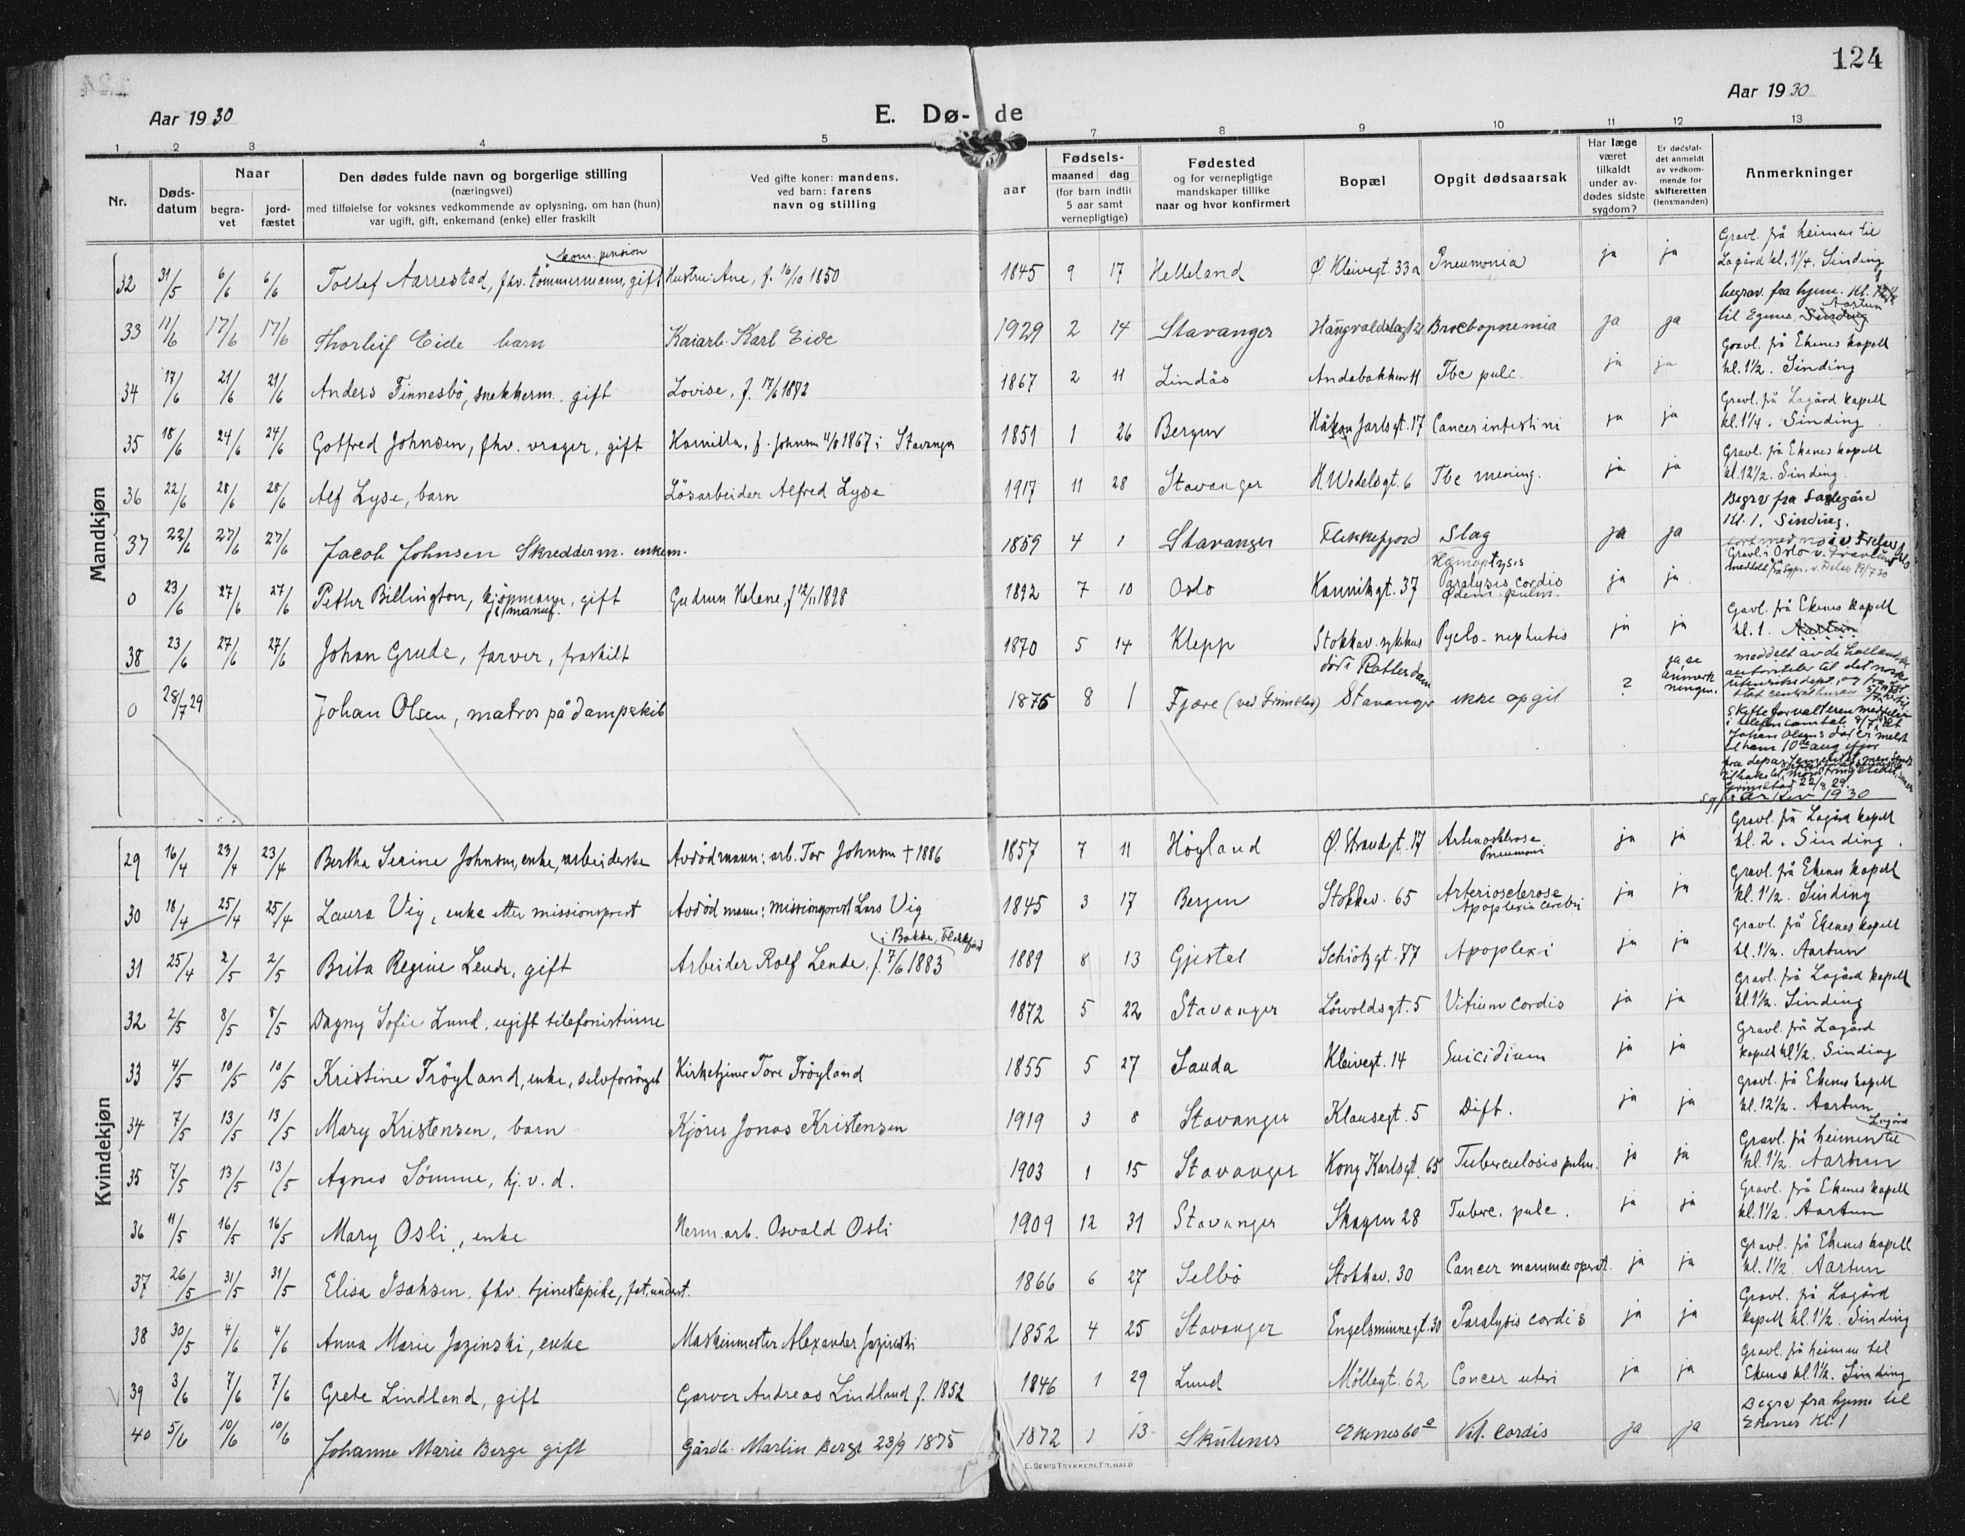 124
Aar 1930
E. Dø- de
Aar 1930
1 2 3 4 5 7 8 9 10 11 12 13
Nr.
Døds-datum
Naar
begra-vet
jord-fæstet
Den dødes fulde navn og borgerlige stilling
(næringsvei)
med tilføielse for voksnes vedkommende av oplysning, om han (hun)
var ugift, gift, enkemand (enke) eller fraskilt
Ved gifte koner: mandens,
ved barn: farens
navn og stilling
aar
Fødsels-
maaned dag
(for barn indtil
5 aar samt
vernepligtige)
Fødested
og for vernepligtige
mandskaper tillike
naar og hvor konfirmert
Bopæl
Opgit dødsaarsak
Har læge
været
tilkaldt
under av-
dødes sidste
sygdom?
Er dødsfal-
det anmeldt
av vedkom-
mende for
skifteretten
(lensmanden)
Anmerkninger
Mandkjøn
32 31/5 6/6 6/6 Tollef Aarrestad, fhv. tømmermann, gift kom. pension Hustru: Ane, f. 16/10 1850 1845 9 17 Helleland Ø. Kleivegt. 33a Pneumonia ja ja Gravl. frå heimen til Lagård kl. 1 1/4. Sinding
33 11/6 17/6 17/6 Thorleif Eide barn Kaiarb. Karl Eide 1929 2 14 Stavanger ja ja begrav. fra hjem. Kl. til Egenes Sinding Aartun
34 17/6 21/6 21/6 Anders Finnesbö, snekkerm. gift Lovise, f. 17/6 1872 1867 2 11 Lindås Andabakken 11 Tbc pulc. ja ja Gravl. på Ekenes kapell kl. 1 1/2. Sinding
35 18/6 24/6 24/6 Gotfred Johnsen, fhv. vrager, gift Kamilla, f. Johnsen 4/8 1867 i Stavanger 1851 1 26 Bergen Håkon Jarlsgt. 17 Cancer intestini ja ja Gravl. frå Lagård kapell kl. 1 1/4. Sinding
36 22/6 28/6 28/6 Alf Lyse, barn Lösarbeider Alfred Lyse 1917 11 28 Stavanger H. Wedelsgt. 6 Tbc mening. ja ja Gravl. frå Ekenes kapell kl. 12 1/2. Sinding
37 22/6 27/6 27/6 Jacob Johnsen Skredderm. enkem. 1859 4 1 Stavanger Flekkefjord Slag ja ja Begrv fra Kl. 1. Sinding.
0 23/6 27/6 27/6 Petter Billington, kjøpmann i manuf. gift Gudrun Helene, f 12/11 1898 1892 7 10 Oslo Kannikgt. 37 Hæmoptysis Paralysis cordis Ødem. pulm. ja ja
38 23/6 27/6 27/6 Johan Grude, farver, fraskilt 1870 5 14 Klepp Stokkav. sykehus Pyelo-nephritis ja ja Gravl. frå Ekenes kapell kl. 1. Aartun
0 28/7 29 Johan Olsen, matros på dampskib 1876 8 1 Fjære (ved Grimstad) död i Rotterdam Stavanger ikke opgit ? ja, se anmerkningen. meddelt av de hollandske autoriteter til det norske
1930
Kvindekjøn
29 16/4 23/4 23/4 Bertha Serine Johnsen, enke, arbeiderske Avdöd mann: arb. Tor Johnsen † 1886 1857 7 11 Høyland Ø. Strandgt. 17 Arteriosklerose Pneumoni ja ja Gravl. frå Lagård kapell kl. 2. Sinding.
30 18/4 25/4 25/4 Laura Vig, enke etter missionsprest Avdöd mann: missionsprest Lars Vig 1845 3 17 Bergen Stokkav. 65 Arteriosclerose Apoplexia cerebri ja ja Gravl. frå Ekenes kapell kl. 1 1/2. Sinding
31 25/4 2/5 2/5 Brita Regine Lende, gift Arbeider Rolf Lende, f. 7/6 1883 i Bakke, Flekkefjord 1889 8 13 Gjestal Schiötzgt. 77 Apoplexi ja ja Gravl. frå Ekenes kapell kl. 1 1/2. Aartun
32 2/5 8/5 8/5 Dagny Sofie Lund, ugift telefonistinne 1872 5 22 Stavanger Lövoldsgt. 5 Vitium cordis ja ja Gravl. frå Lagård kapell kl. 1 1/2. Sinding
33 4/5 10/5 10/5 Kristine Tröyland, enke, selvforsörget Kirketjener Tore Tröyland 1855 5 27 Sauda Kleivegt. 14 Suicidium ja ja Gravl. frå Lagård kapell kl 1/2. Sinding
34 7/5 13/5 13/5 Mary Kristensen, barn Kjörer Jonas Kristensen 1919 3 8 Stavanger Klausegt. 5 Dift. ja ja Gravl. frå Ekenes kapell kl. 12 1/2. Aartun
35 7/5 13/5 13/5 Agnes Sömme, hj. v. d. 1903 1 15 Stavanger Kong Karlsgt. 65 Tuberculosis pulm. ja ja Gravl. frå heimen til Lagård kl. 1 1/2. Aartun
36 11/5 16/5 16/5 Mary Osli, enke Herm. arb. Osvald Osli 1909 12 31 Stavanger Skagen 28 Tuberc. pulc. ja ja Gravl. frå Ekenes kapell kl. 1 1/2. Aartun
37 26/5 31/5 31/5 Elisa Isaksen. fhv. tjenestepike, fat. underst. 1866 6 27 Selbö Stokkav. 30 Cancer mammæ operat. ja ja Gravl. frå Ekenes kapell kl. 1 1/2. Aartun
38 30/5 4/6 4/6 Anna Marie Jazinski, enke Maskinmester Alexander Jazinski 1852 4 25 Stavanger Engelsminnegt. 30 Paralysis cordis ja ja Gravl. frå Lagård kapell kl. 1 1/2. Sinding
39 3/6 7/6 7/6 Grete Lindland, gift Garver Andreas Lindland f. 1852 1846 1 29 Lund Möllegt. 62 Cancer uteri ja ja Gravl. frå heimen til Ekenes kl. 1 1/2. Sinding
40 5/6 10/6 10/6 Johanne Marie Berge gift Gårdb. Martin Berge 23/9 1875 1872 1 13 Skutenes Ekenes 60 a Vit. Cordis ja ja Begrv fra hjem til Ekenes Kl. 1